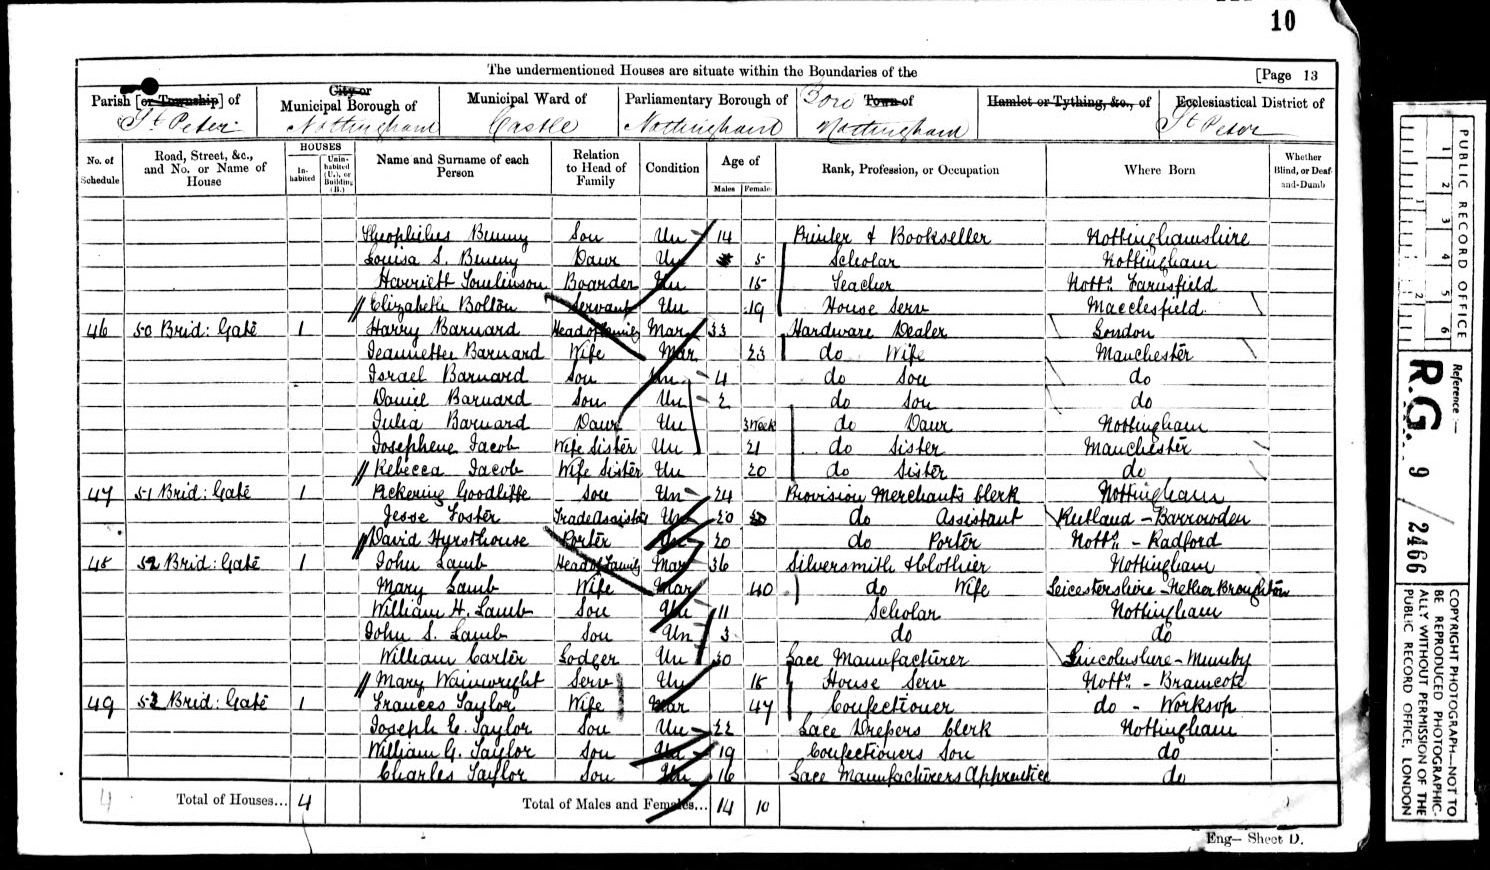 10
The undermentioned Houses are situate within the Boundaries of the [Page 13
Parish [or Township] of City or Municipal Borough of Municipal Ward of Parliamentary Borough of Boro Town of Hamlet or Tything, &c., of Ecclesiastical District of
St Peter Nottingham Castle Nottingham Nottingham St Peter
No. of Schedule Road, Street, &c., and No. or Name of House HOUSES Inhabited Uninhabited (U.), or Building (B.) Name and Surname of each Person Relation to Head of Family Condition Age of Males Females Rank, Profession, or Occupation Where Born Whether Blind, or Deaf-and-Dumb
Theophilus Bunny Son Un 14 Printer & Bookseller Nottinghamshire
Louisa S. Bunny Daur Un 5 Scholar Nottingham
Harriett Tomlinson Boarder Un 15 Teacher Notts. Farnsfield
Elizabeth Bolton Servant Un 19 House Serv Macclesfield
46 50 Brid: Gate 1 Harry Barnard Head of Family Mar 33 Hardware Dealer London
Jeannettee Barnard Wife Mar 23 do Wife Manchester
Israel Barnard Son Un 4 do Son do
Daniel Barnard Son Un 2 do Son do
Julia Barnard Daur Un 3 Week do Daur Nottingham
Josephene Jacob Wife Sister Un 21 do Sister Manchester
Rebecca Jacob Wife Sister Un 20 do Sister do
47 51 Brid: Gate 1 Pickering Goodliffe Son Un 24 Provision Merchants Clerk Nottingham
Jesse Foster Trade Assistor Un 20 do Assistant Rutland - Barrowden
David Hursthouse Porter Un 20 do Porter Notts. - Radford
48 52 Brid: Gate 1 John Lamb Head of Family Mar 36 Silversmith & Clothier Nottingham
Mary Lamb Wife Mar 40 do Wife Leicestershire - Nether Broughton
William H. Lamb Son Un 11 Scholar Nottingham
John S. Lamb Son Un 3 do do
William Carter Lodger Un 30 Lace Manufacturer Lincolnshire - Mumby
Mary Wainwright Serv Un 18 House Serv Notts. - Bramcote
49 53 Brid: Gate 1 Frances Taylor Wife Mar 47 Confectioner do - Worksop
Joseph E. Taylor Son Un 22 Lace Drepers Clerk Nottingham
William G. Taylor Son Un 19 Confectioners Son do
Charles Taylor Son Un 16 Lace Manufacturers Apprentice do
4 Total of Houses... 4 Total of Males and Females... 14 10
Eng- Sheet D.
PUBLIC RECORD OFFICE
1 2 3 4 5 6
1 2
Reference:-
R.G. 9 / 2466
COPYRIGHT PHOTOGRAPH—NOT TO
BE REPRODUCED PHOTOGRAPHIC-
ALLY WITHOUT PERMISSION OF THE
PUBLIC RECORD OFFICE, LONDON